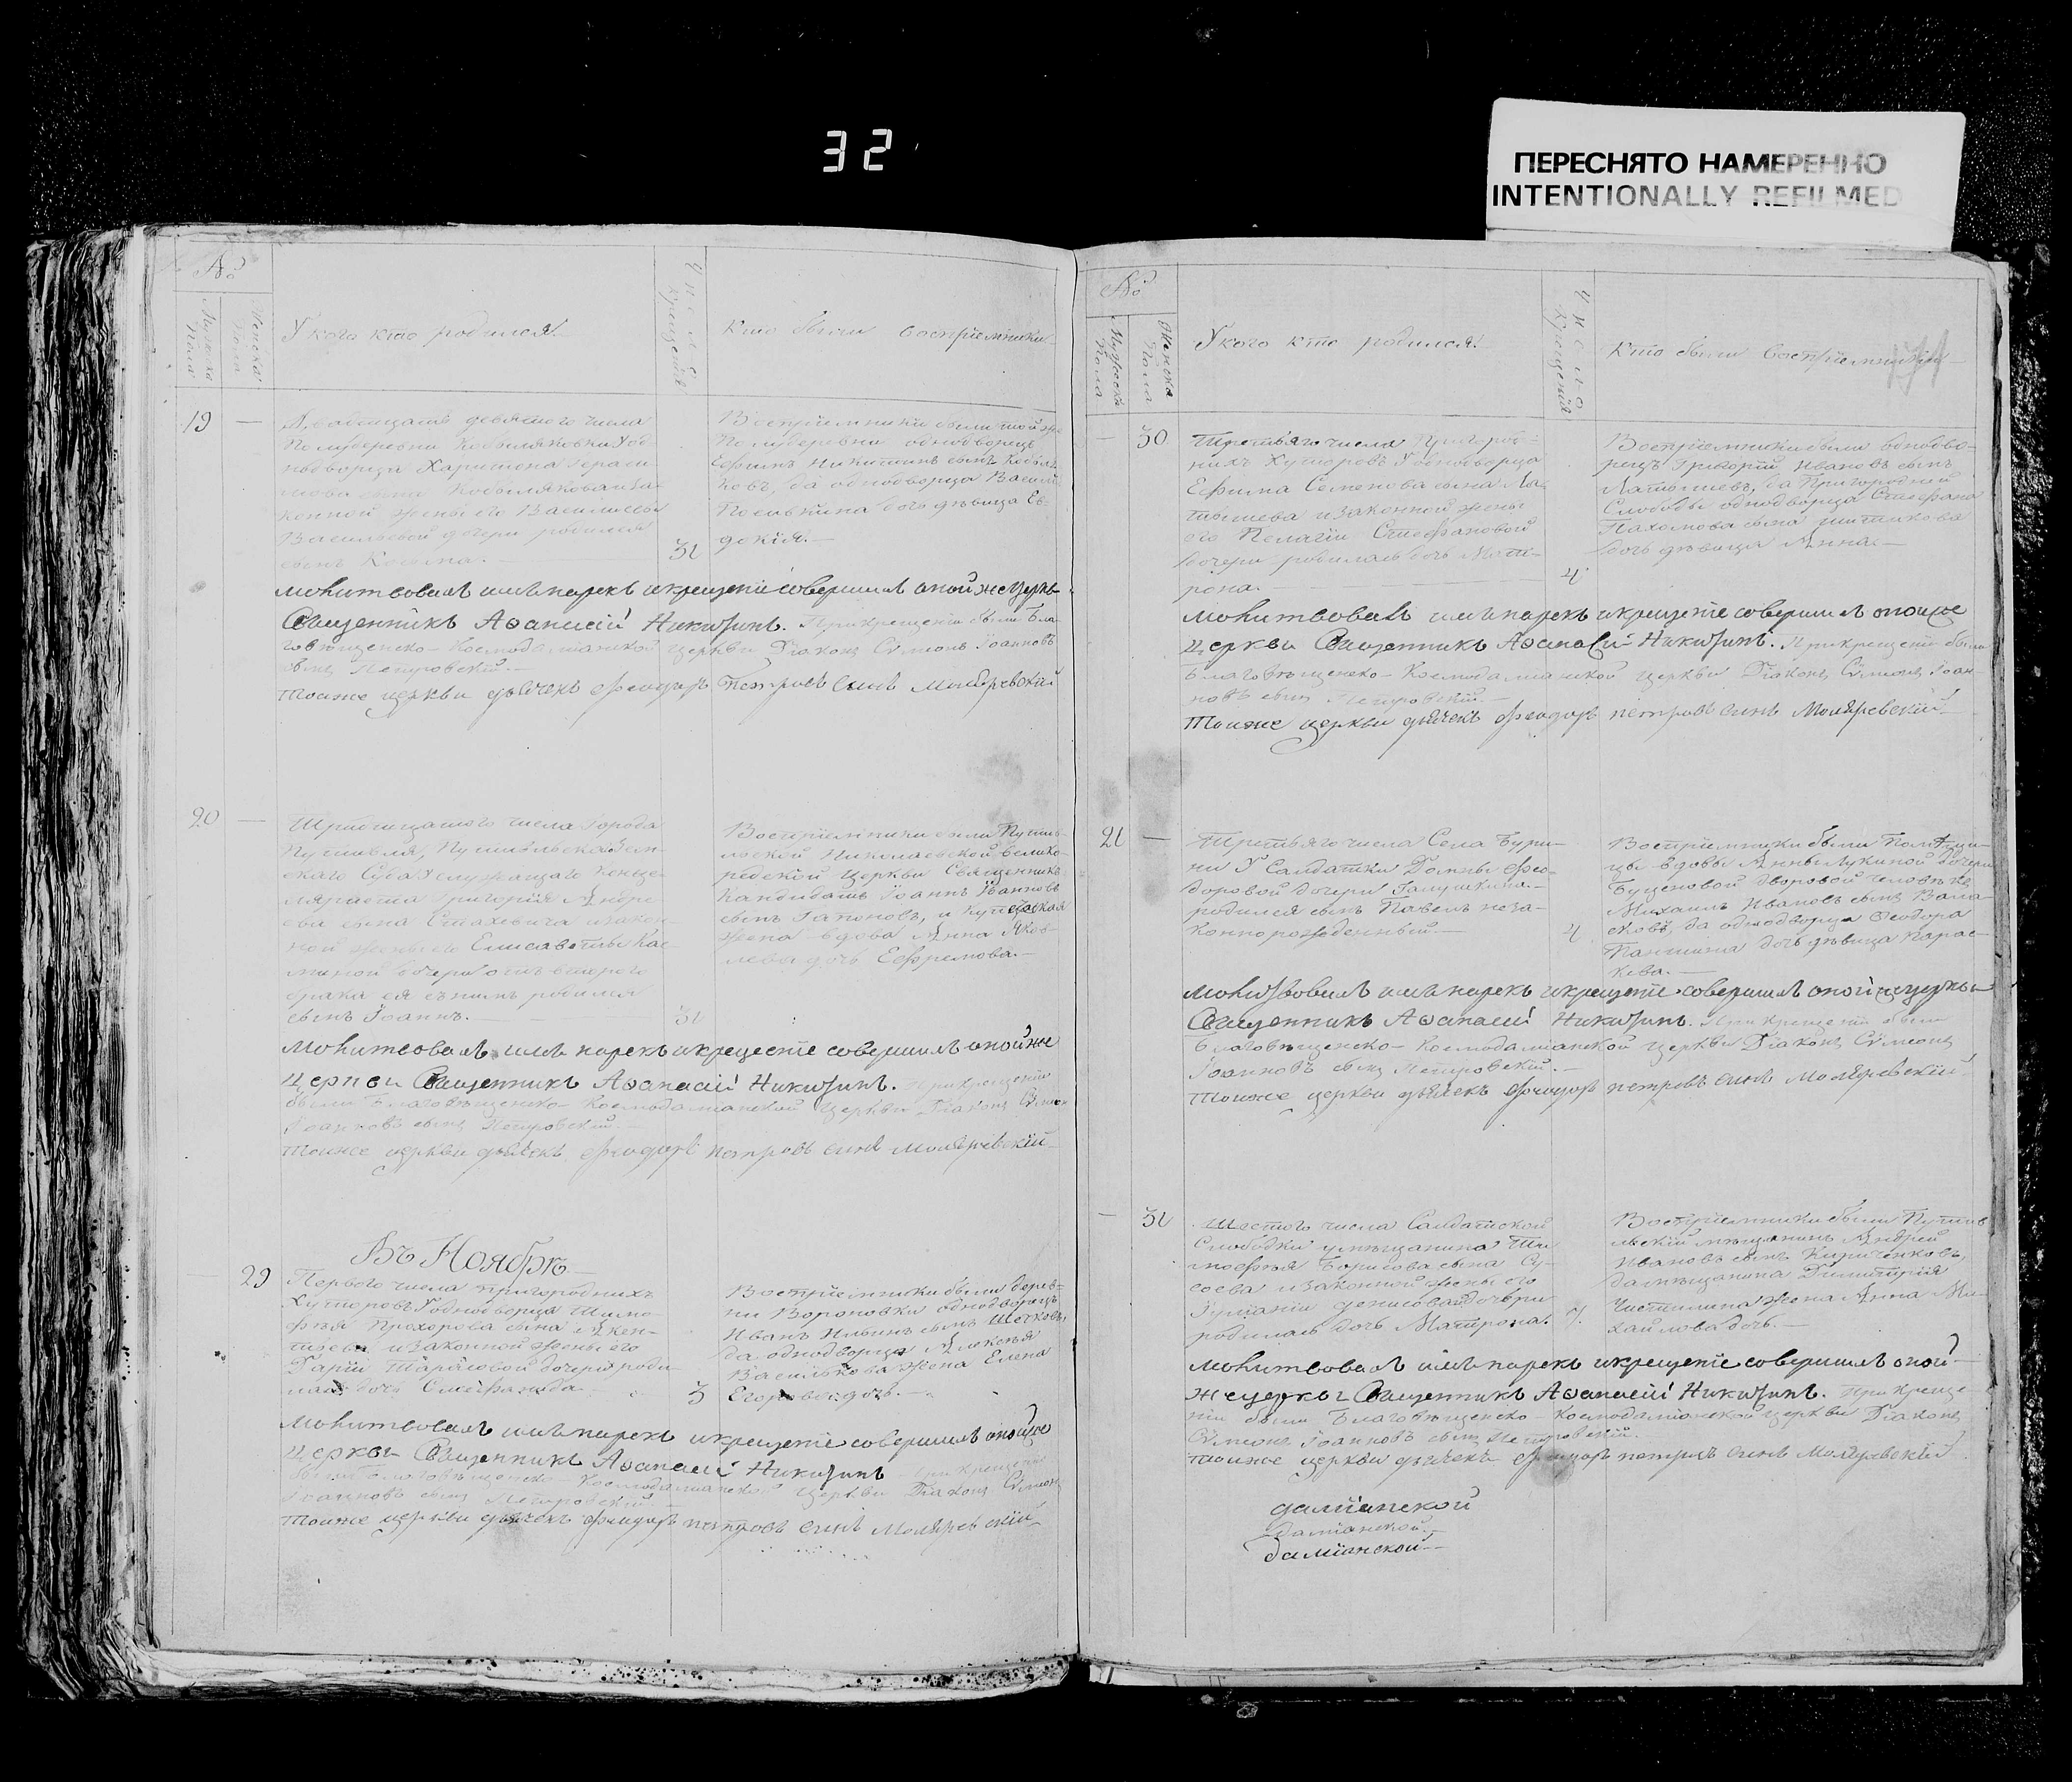 32
ПЕРЕСНЯТО НАМЕРЕННО
INTENTIONALLY REFILMED
№
Мужеска Пола
Женска Пола
У кого кто родился.
Число Крещения
Кто были восприемники
19
Двадцать девятого числа
Полудеревни Кобыляковки У од-
нодворца Харитона Гераси-
мова сына Кобылякова и за-
конной жены его Василисы
Васильевой дочери родился
сынъ Косма.
31
Восприемники были той же
Полудеревни однодворецъ
Ефимъ Никитинъ сынъ Кобыля-
ковъ, да однодворца Василія
дочь дѣвица Ев-
докія.
молитвовалъ имя нарекъ и крещеніе совершилъ оной же церкви
Священникъ Аѳанасій Никитинъ. При крещеніи были Бла-
говѣщенско-Космодаміанской церкви Діаконъ Сѵмеонъ Іоанновъ
сынъ Петровскій.
Тоиже церкви дьячекъ Феодоръ Петровъ синъ Моляревскій
20
Тридцатого числа города
Путивля, Путивльскаго Зем-
скаго Суда У служащаго Канце-
ляриста Григорія Андре-
ева сына Стаховича и закон-
ной жены его Елисаветы Кос-
миной дочери отъ втораго
брака ея съ нимъ родился
сынъ Іоаннъ.
31
Восприемники были Путив-
льской Николаевской Велико-
рѣцкой церкви Священникъ
Кандидатъ Іоаннъ Іоанновъ
сынъ Гапоновъ, и Купецкая
жена вдова Анна Яков-
лева дочь Ефремова.
Молитвовалъ имя нарекъ и крещеніе совершилъ оной же
церкви Священникъ Аѳанасій Никитинъ. При крещеніи
были Благовѣщенско-Космодаміанской церкви Діаконъ Сѵмеонъ
Іоанновъ сынъ Петровскій.
Тоиже церкви дьячекъ Феодоръ петровъ синъ Моляревскій
Въ Ноябрѣ
29
Перваго числа пригородныхъ
Хуторовъ У однодворца Тимо-
фея Прохорова сына
и законной жены его
Даріи Тарасовой дочери роди-
лась дочь Стефанида.
3
Восприемники были дерев-
ни Вороновки однодворецъ
Иванъ Ильинъ сынъ
да однодворца Алексѣя
Василькова жена Елена
Егорова дочь.
Молитвовалъ имя нарекъ и крещеніе совершилъ оной же
церкви Священникъ Аѳанасій Никитинъ. При крещеніи
были Благовѣщенско-Космодаміанской церкви Діаконъ Сѵмеонъ
Іоанновъ сынъ Петровскій
Тоиже церкви дьячекъ Феодоръ петровъ синъ Моляревскій
№
Мужеска Пола
Женска Пола
У кого кто родился.
Число Крещения
Кто были Восприемники
30
Третьяго числа Пригород-
нихъ Хуторовъ У однодворца
Ефима Семенова сына Ла-
тышева и законной жены
его Пелагіи Стефановой
дочери родилась дочь Мат-
рона.
4
Восприемники были однодво-
рецъ Григорій Ивановъ сынъ
Латышевъ, да Пригородней
Слободы однодворца Стефана
Пахомова сына
дочь дѣвица Анна
молитвовалъ имя нарекъ и крещеніе совершилъ оной же
церкви Священникъ Аѳанасій Никитинъ. При крещеніи были
Благовѣщенско-Космодаміанской церкви Діаконъ Сѵмеонъ Іоан-
новъ сынъ Петровскій.
Тоиже церкви дьячекъ Феодоръ петровъ синъ Моляревскій
21
Третьяго числа Села Буры-
ни У Салдатки Домны Фео-
доровой дочери Галушкина
родился сынъ Павелъ неза-
коннорожденный.
4
Восприемники были
вдовы Анны Лукиной дочери
Буценовой дворовой человѣкъ
Михаилъ Ивановъ сынъ
да однодворца Ѳеодора
Паншина дочь дѣвица Парас-
кева.
молитвовалъ имя нарекъ и крещеніе совершилъ оной же церкви
Священникъ Аѳанасій Никитинъ. При крещеніи были
Благовѣщенско-Космодаміанской церкви Діаконъ Сѵмеонъ
Іоанновъ сынъ Петровскій.
Тоиже церкви дьячекъ Феодоръ петровъ синъ Моляревскій
31
Шестого числа Салдатской
Слободки у мѣщанина Ти-
мофея Борисова сына Сы-
соева и законной жены его
Іуліаніи Денисовой дочери
родилась дочь Матрона.
7.
Восприемники были Путив-
льскій мѣщанинъ Андрей
Ивановъ сынъ Кириченковъ,
да мѣщанина Димитрія
Чистилина жена Анна Ми-
хайлова дочь.
молитвовалъ имя нарекъ и крещеніе совершилъ оной
же церкви Священникъ Аѳанасій Никитинъ. При креще-
ніи были Благовѣщенско-Космодаміанской церкви Діаконъ
Сѵмеонъ Іоанновъ сынъ Петровскій.
тоиже церкви дьячекъ Феодоръ петровъ синъ Моляревскій
даміанской
даміанской
даміанской